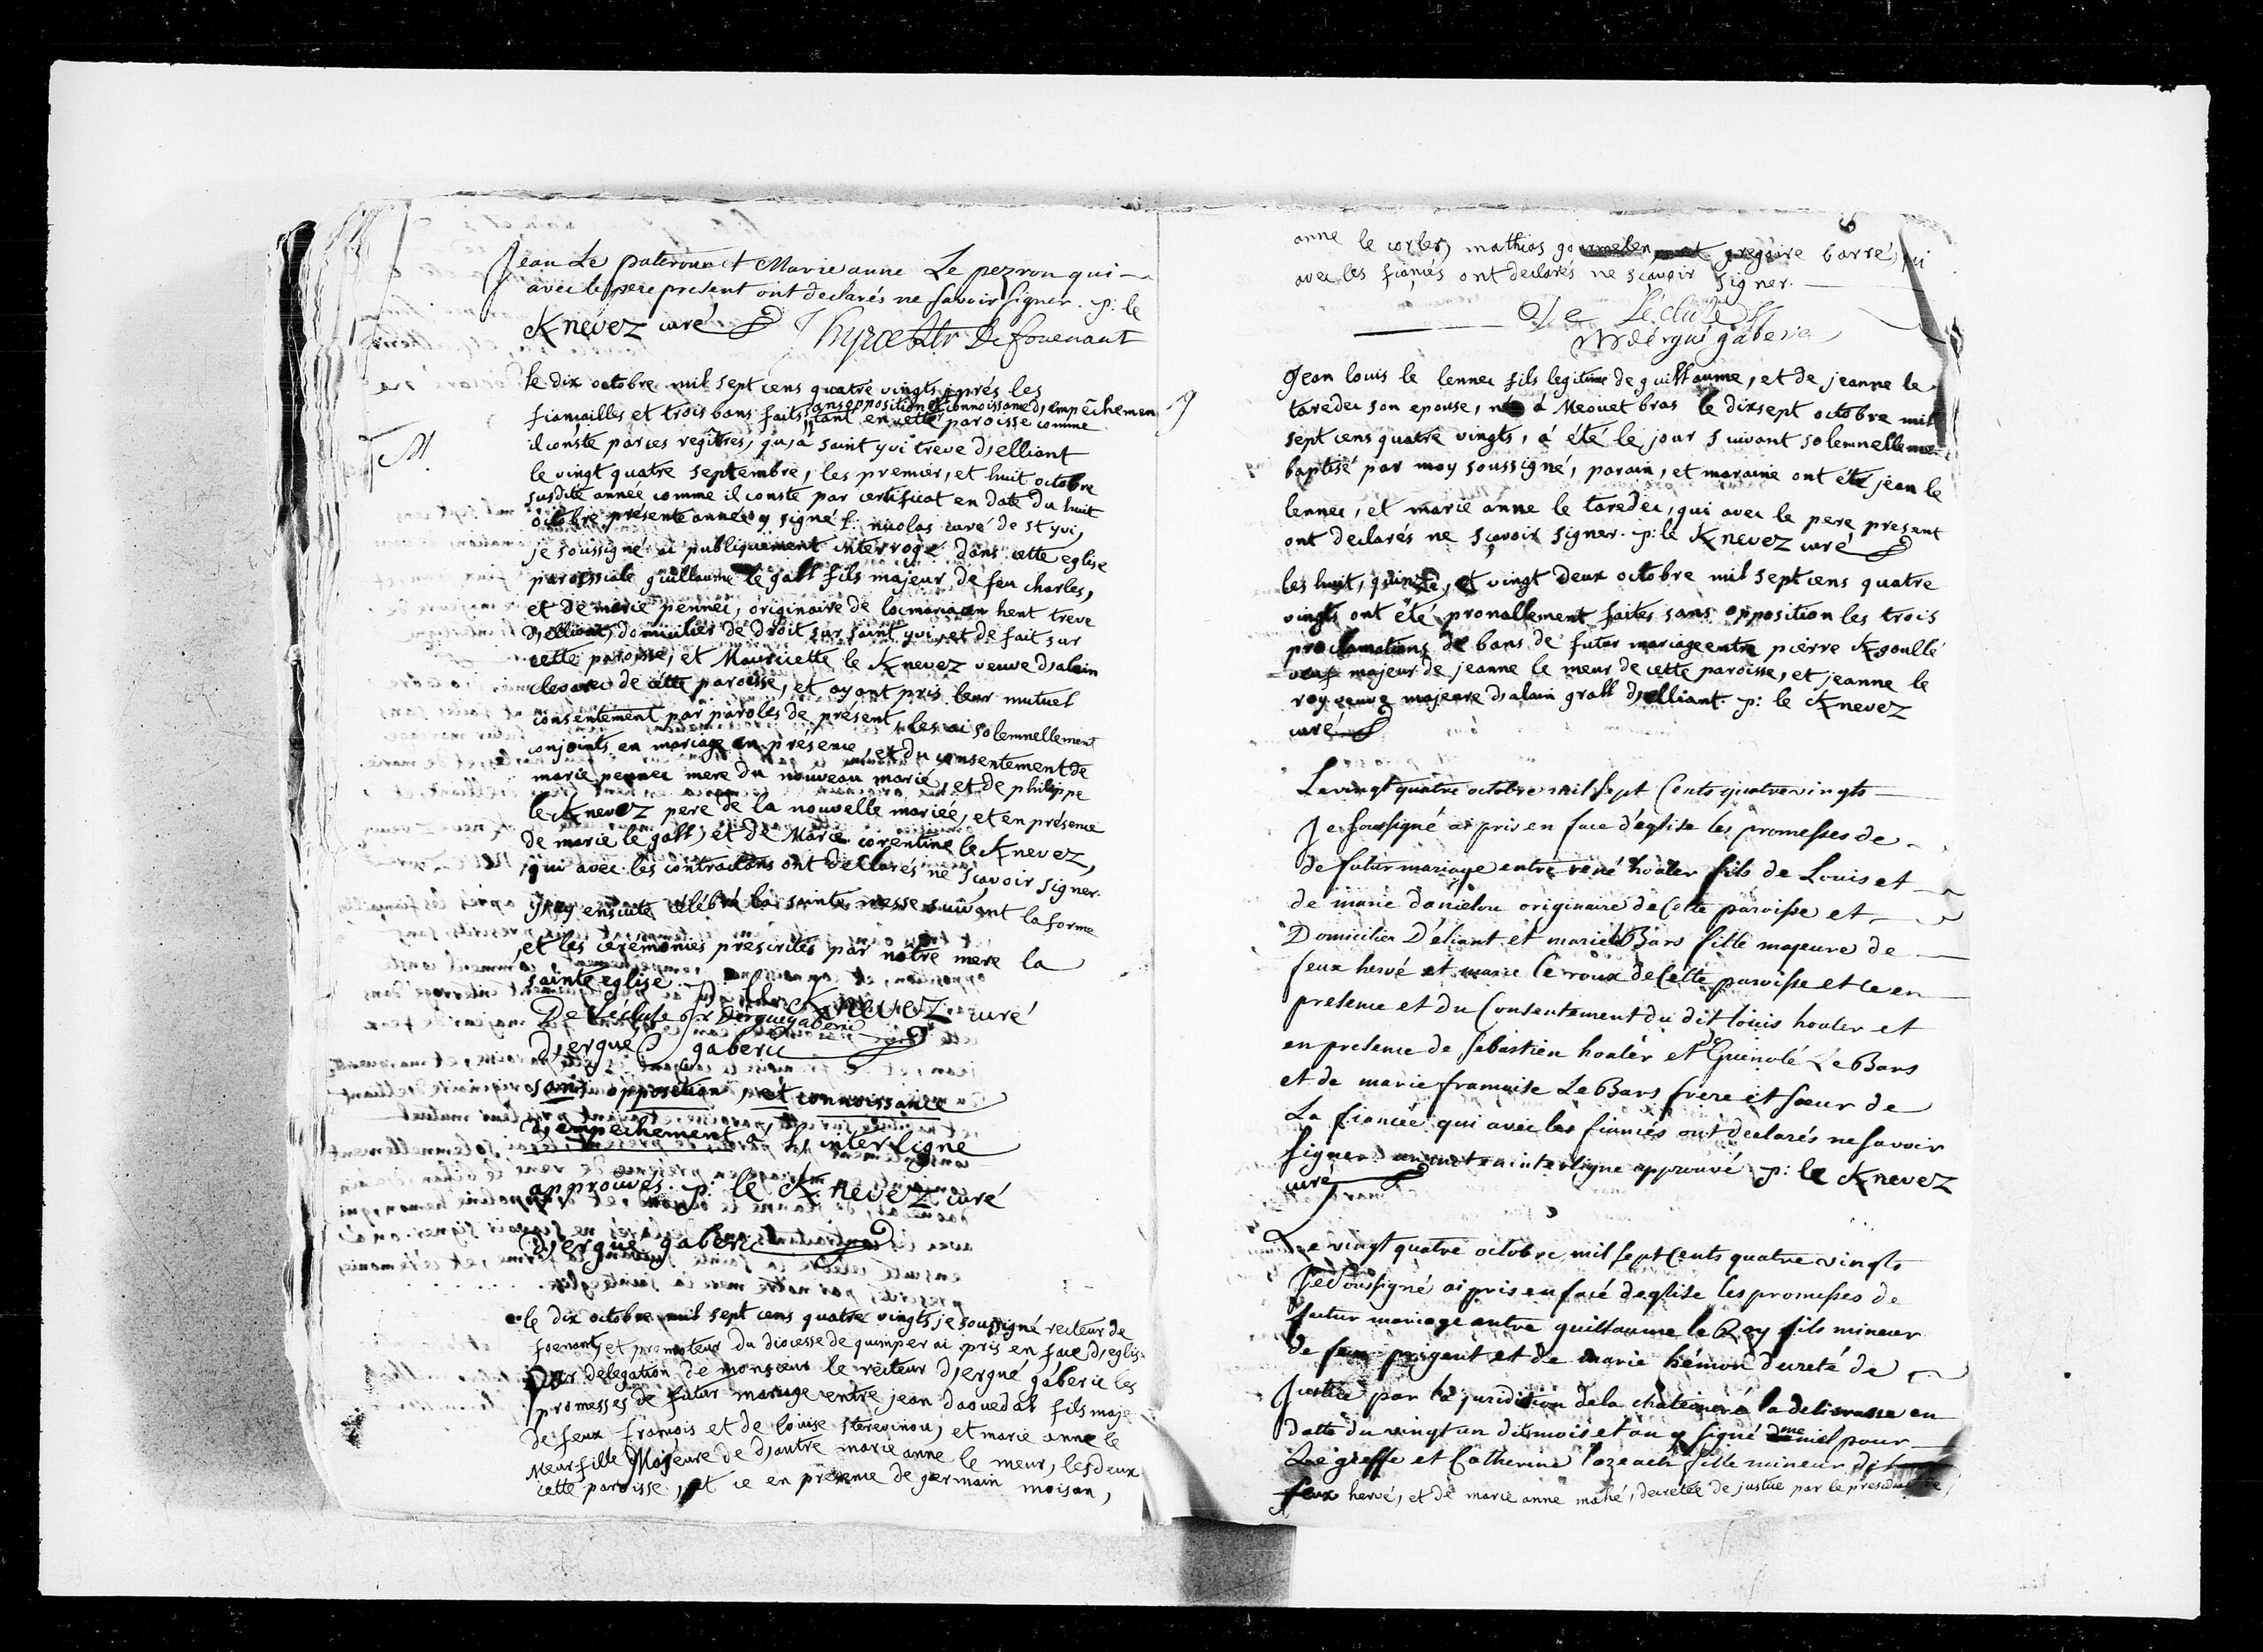 Jean Le pateroure et Marie anne Le pezron qui
avec le pere present ont declarés ne savoir signer. p: le
Knevez curé De fouenant
le dix octobre mil sept cens quatre vingts aprés les
sans opposition et connoissance d'empêchemen
fiançailles et trois bans faits tant en cette paroisse comme
il conste par ces regîtres, qu'à saint yvi treve d'elliant
M.
le vingt quatre septembre, les premier, et huit octobre
susdite année comme il conste par certificat en date du huit
octobre présente année y signé f. nicolas curé de st yvi,
je soussigné ai publiquement interrogé dans cette eglise
paroissiale guillaume le gall fils majeur de feu charles,
et de marie pennec, originaire de locmaria an hent treve
d'elliant, domicilier de droit sur saint yvi, et de fait sur
cette paroisse, et Mauricette le Knevez veuve d'alain
de cette paroisse, et ayant pris leur mutuel
consentement par paroles de présent, les ai solemnellement
conjoints en mariage en présence, et du consentement de
marie pennec mere du nouveau marié, et de philippe
le Knevez pere de la nouvelle mariée, et en présence
de marie le gall, et de Marie corentine le Knevez,
qui avec les contractans ont declarés ne sçavoir signer.
j'ay ensuite célébré la sainte messe suivant la forme
et les ceremonies prescrites par notre mere la
sainte eglise. p. le Knevez curé
De Lécluse r. d'ergue gaberic
d'ergué gaberic
sans opposition, et connoissance
d'empechement à l'interligne
approuvés. p. le Knevez curé
d'ergué gaberic
le dix octobre mil sept cens quatre vingts je soussigné recteur de
foenant, et promoteur du diocesse de quimper ai pris en face d'eglise
par delegation de monsieur le recteur d'ergué gaberic les
promesses de futur mariage entre jean daouedal fils maje
de feux françois et de louise sterevinou, et marie anne le
Meur fille Majeure de d'autre marie anne le meur, les deux
cette paroisse, et ce en présence de germain moisan,
anne le corler, mathias gourmelen et gregoire barré, qui
avec les fiancés ont declarés ne sçavoir signer.
De Lécluse
r d'érgué gaberic
Jean louis le lennec fils legitime de guillaume, et de jeanne le
taredec son epouse, né à Meouet bras le dixsept octobre mil
sept cens quatre vingts, à été le jour suivant solemnellemen
baptisé par moy soussigné, parain, et maraine ont été jean le
lennec, et marie anne le taredec, qui avec le pere present
ont declarés ne sçavoir signer. p: le Knevez curé
les huit, quinze, et vingt deux octobre mil sept cens quatre
vingts ont été pronallement faites sans opposition les trois
proclamations de bans de futur mariage entre pierre Kgoullé
veuf majeur de jeanne le meur de cette paroisse, et jeanne le
roy veuve majeure d'alain grall d'elliant. p: le Knevez
curé
Le vingt quatre octobre mil sept Cents quatre vingts
Je soussigné ai pris en face d'eglise les promesses de
de futur mariage entre rené hoaler fils de Louis et
de marie danielou originaire de Cette paroisse et
Domicilier D'éliant et marie le Bars fille majeure de
feux hervé et marie le roux de Cette paroisse et ce en
presence et du Consentement du dit louis hoaler et
en presence de sebastien hoaler et de Guenolé Le Bars
et de marie francoise Le Bars frere et sœur de
La fiancée qui avec les fiancés ont declarés ne savoir
signer. un mot en interligne approuvé. p: le Knevez
curé
Le vingt quatre octobre mil sept Cents quatre vingts
Je Soussigné ai pris en face d'eglise les promesses de
futur mariage entre guillaume le Roy fils mineur
de feu prigent et de marie hémon decreté de
Justice par la juridiction de la en
datte du vingt un dit mois et an y signé pour
Le greffe et Catherine lozeach fille mineur de
feux hervé, et de marie anne mahé, decretée de justice par le presidial de